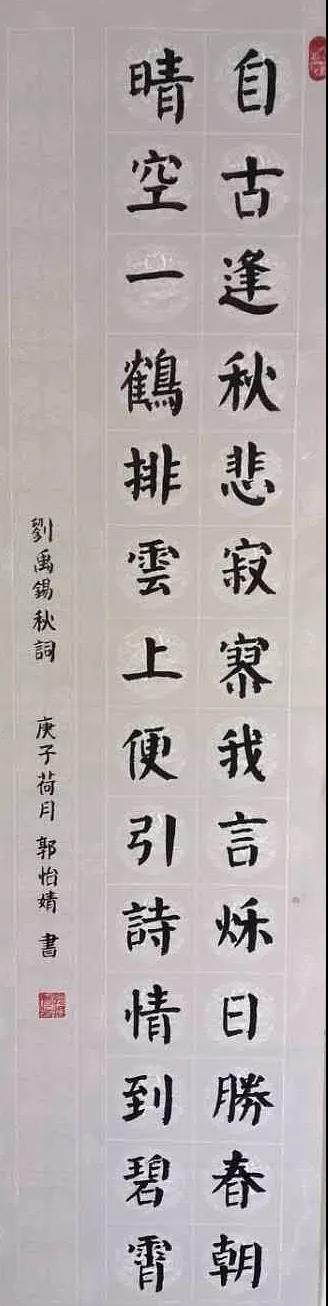 自古逢秋悲寂寥我言秌日勝春朝
晴空一鶴排雲上便引詩情到碧霄
劉禹錫秋詞 庚子荷月 郭怡婧 書